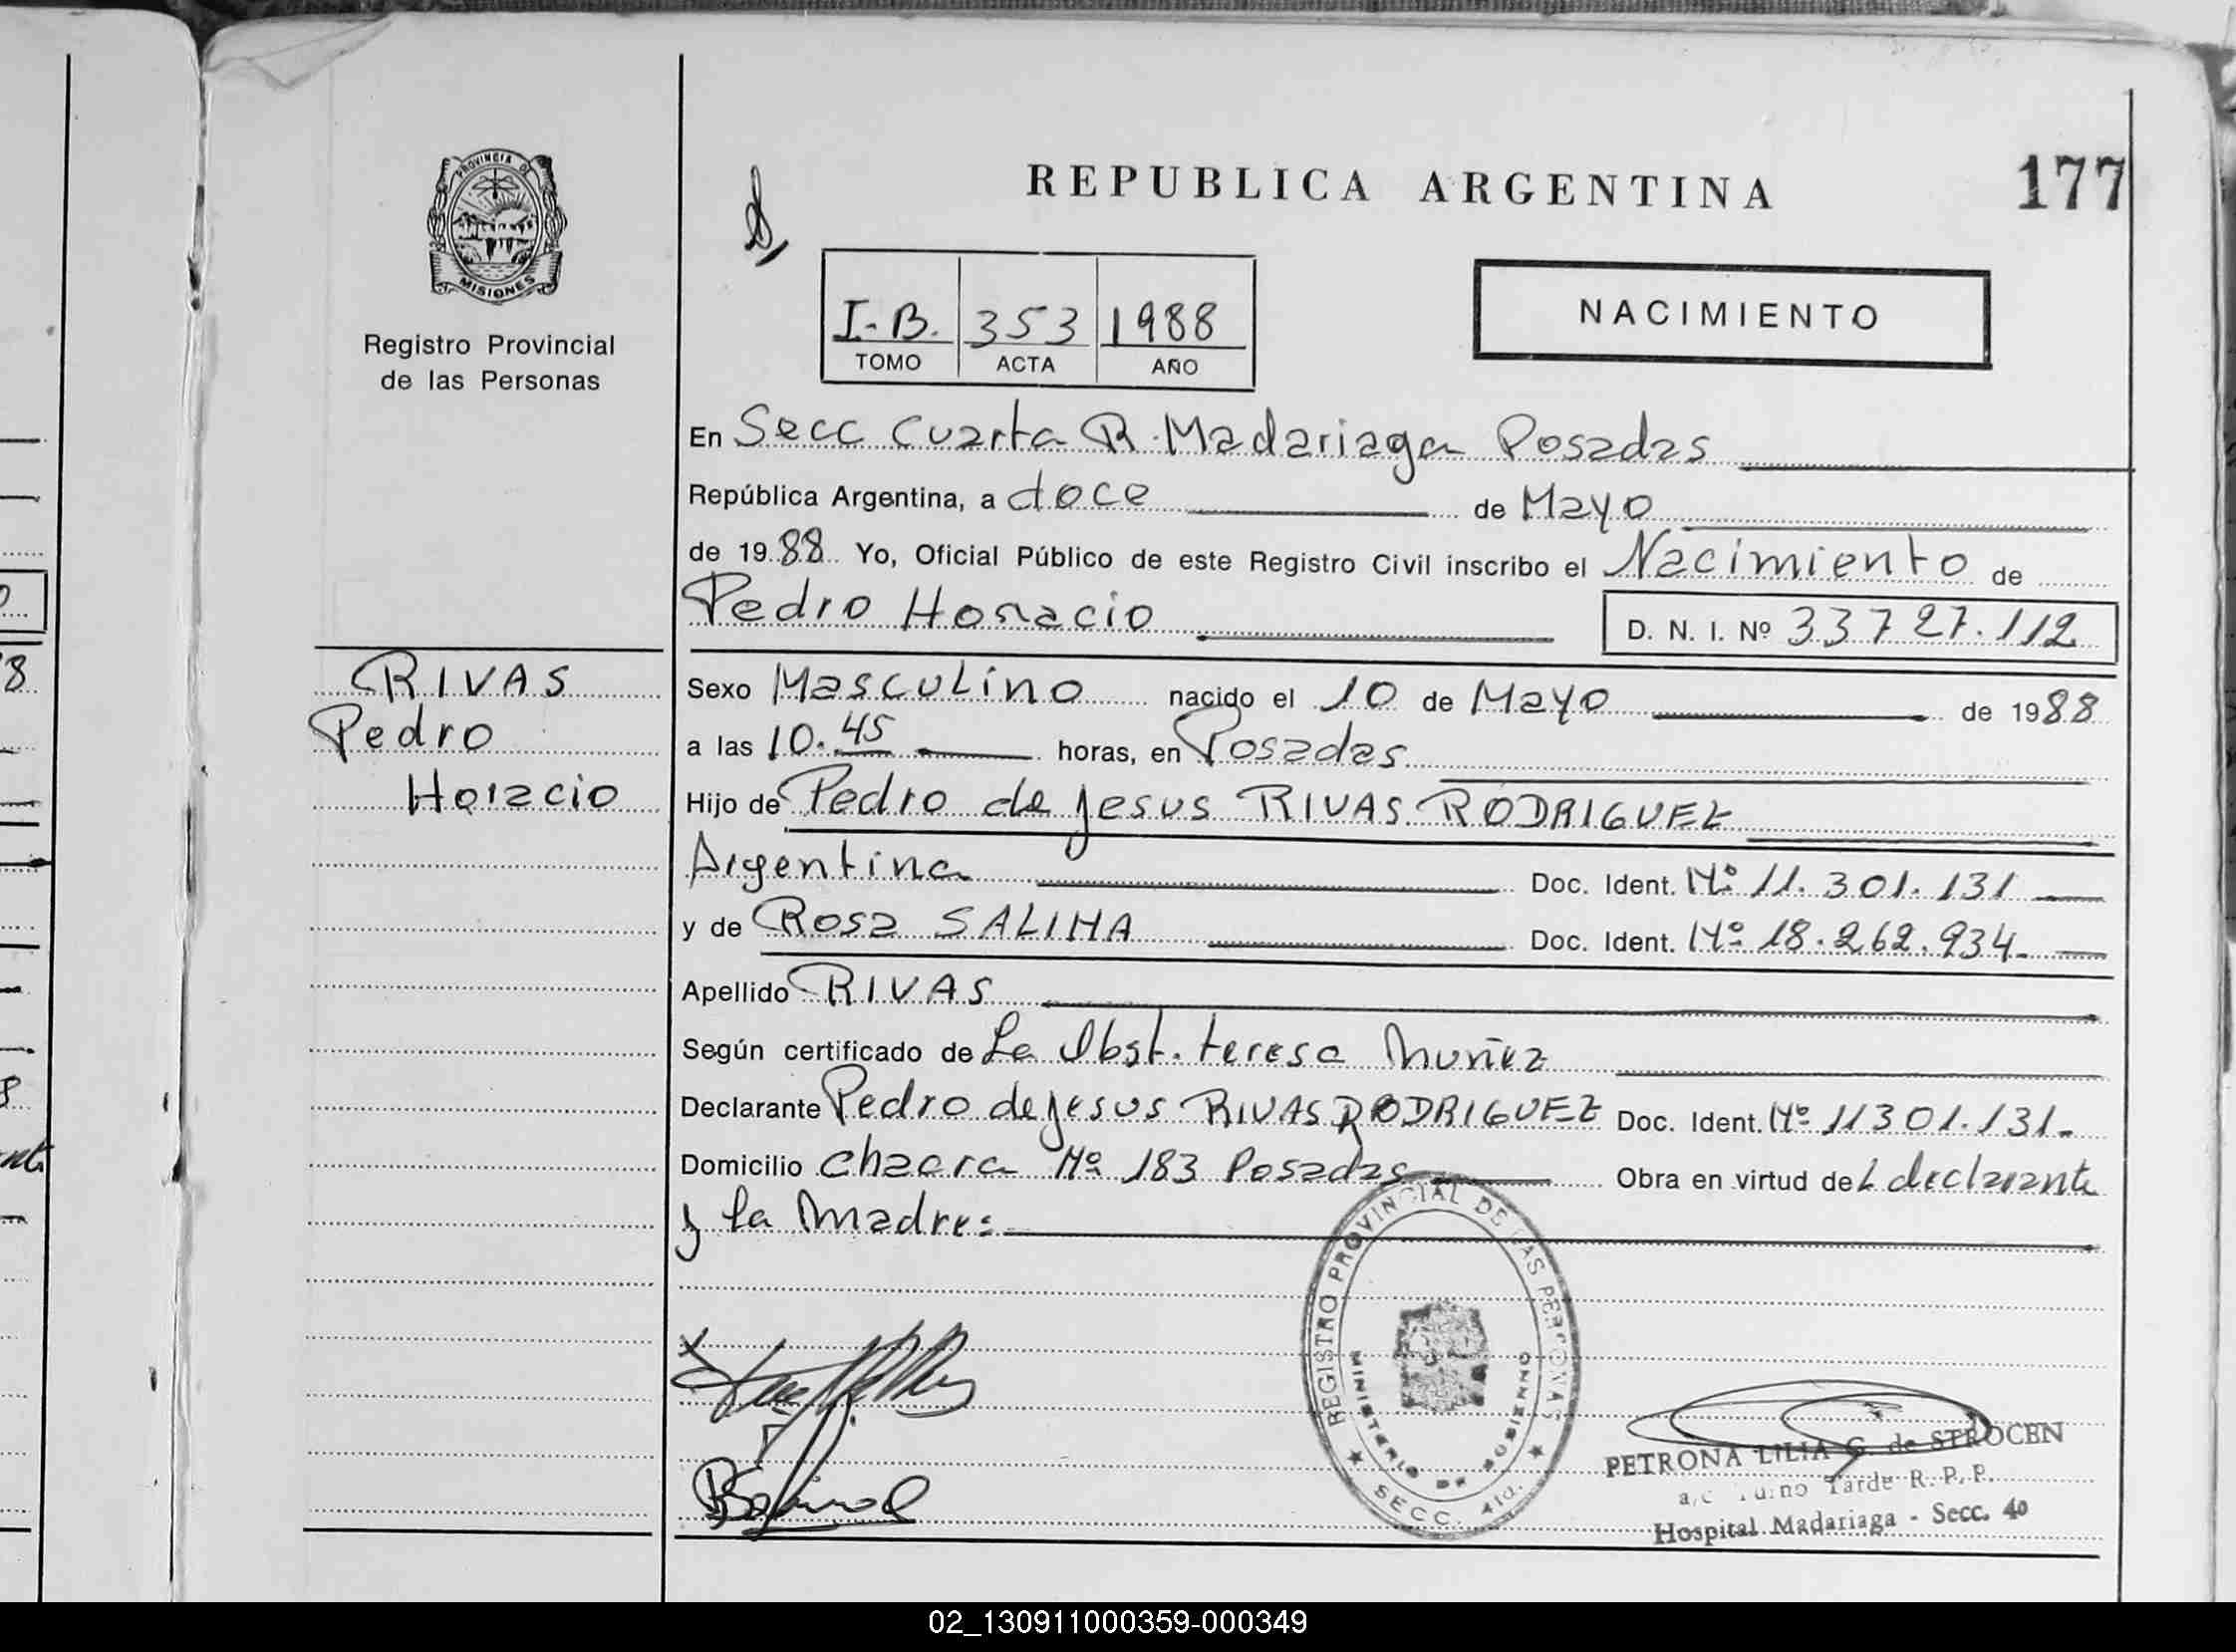 PROVINCIA DE
MISIONES
Registro Provincial
de las Personas
REPUBLICA ARGENTINA
177
I-B. 353 1988
TOMO ACTA AÑO
NACIMIENTO
En Secc Cuarta R. Madariaga Posadas
República Argentina, a doce de Mayo
de 1988 Yo, Oficial Público de este Registro Civil inscribo el Nacimiento de
Pedro Horacio D. N. I. Nº 33727.112
RIVAS
Pedro
Horacio
Sexo Masculino nacido el 10 de Mayo de 1988
a las 10.45 horas, en Posadas
Hijo de Pedro de Jesus RIVAS RODRIGUEZ
Argentina Doc. Ident. Nº 11.301.131
y de Rosa SALINA Doc. Ident. Nº 18.262.934
Apellido RIVAS
Según certificado de La Obst. teresa Muñez
Declarante Pedro de Jesus RIVAS RODRIGUEZ Doc. Ident. Nº 11301.131.
Domicilio Chacra Nº 183 Posadas Obra en virtud del declarante
y la Madre:
REGISTRO PROVINCIAL DE LAS PERSONAS
MINISTERIO DE GOBIERNO
SECC. 4ta.
PETRONA LILIA G. de STROCEN
a/c Turno Tarde R. P. P.
Hospital Madariaga - Secc. 4o
02_130911000359-000349